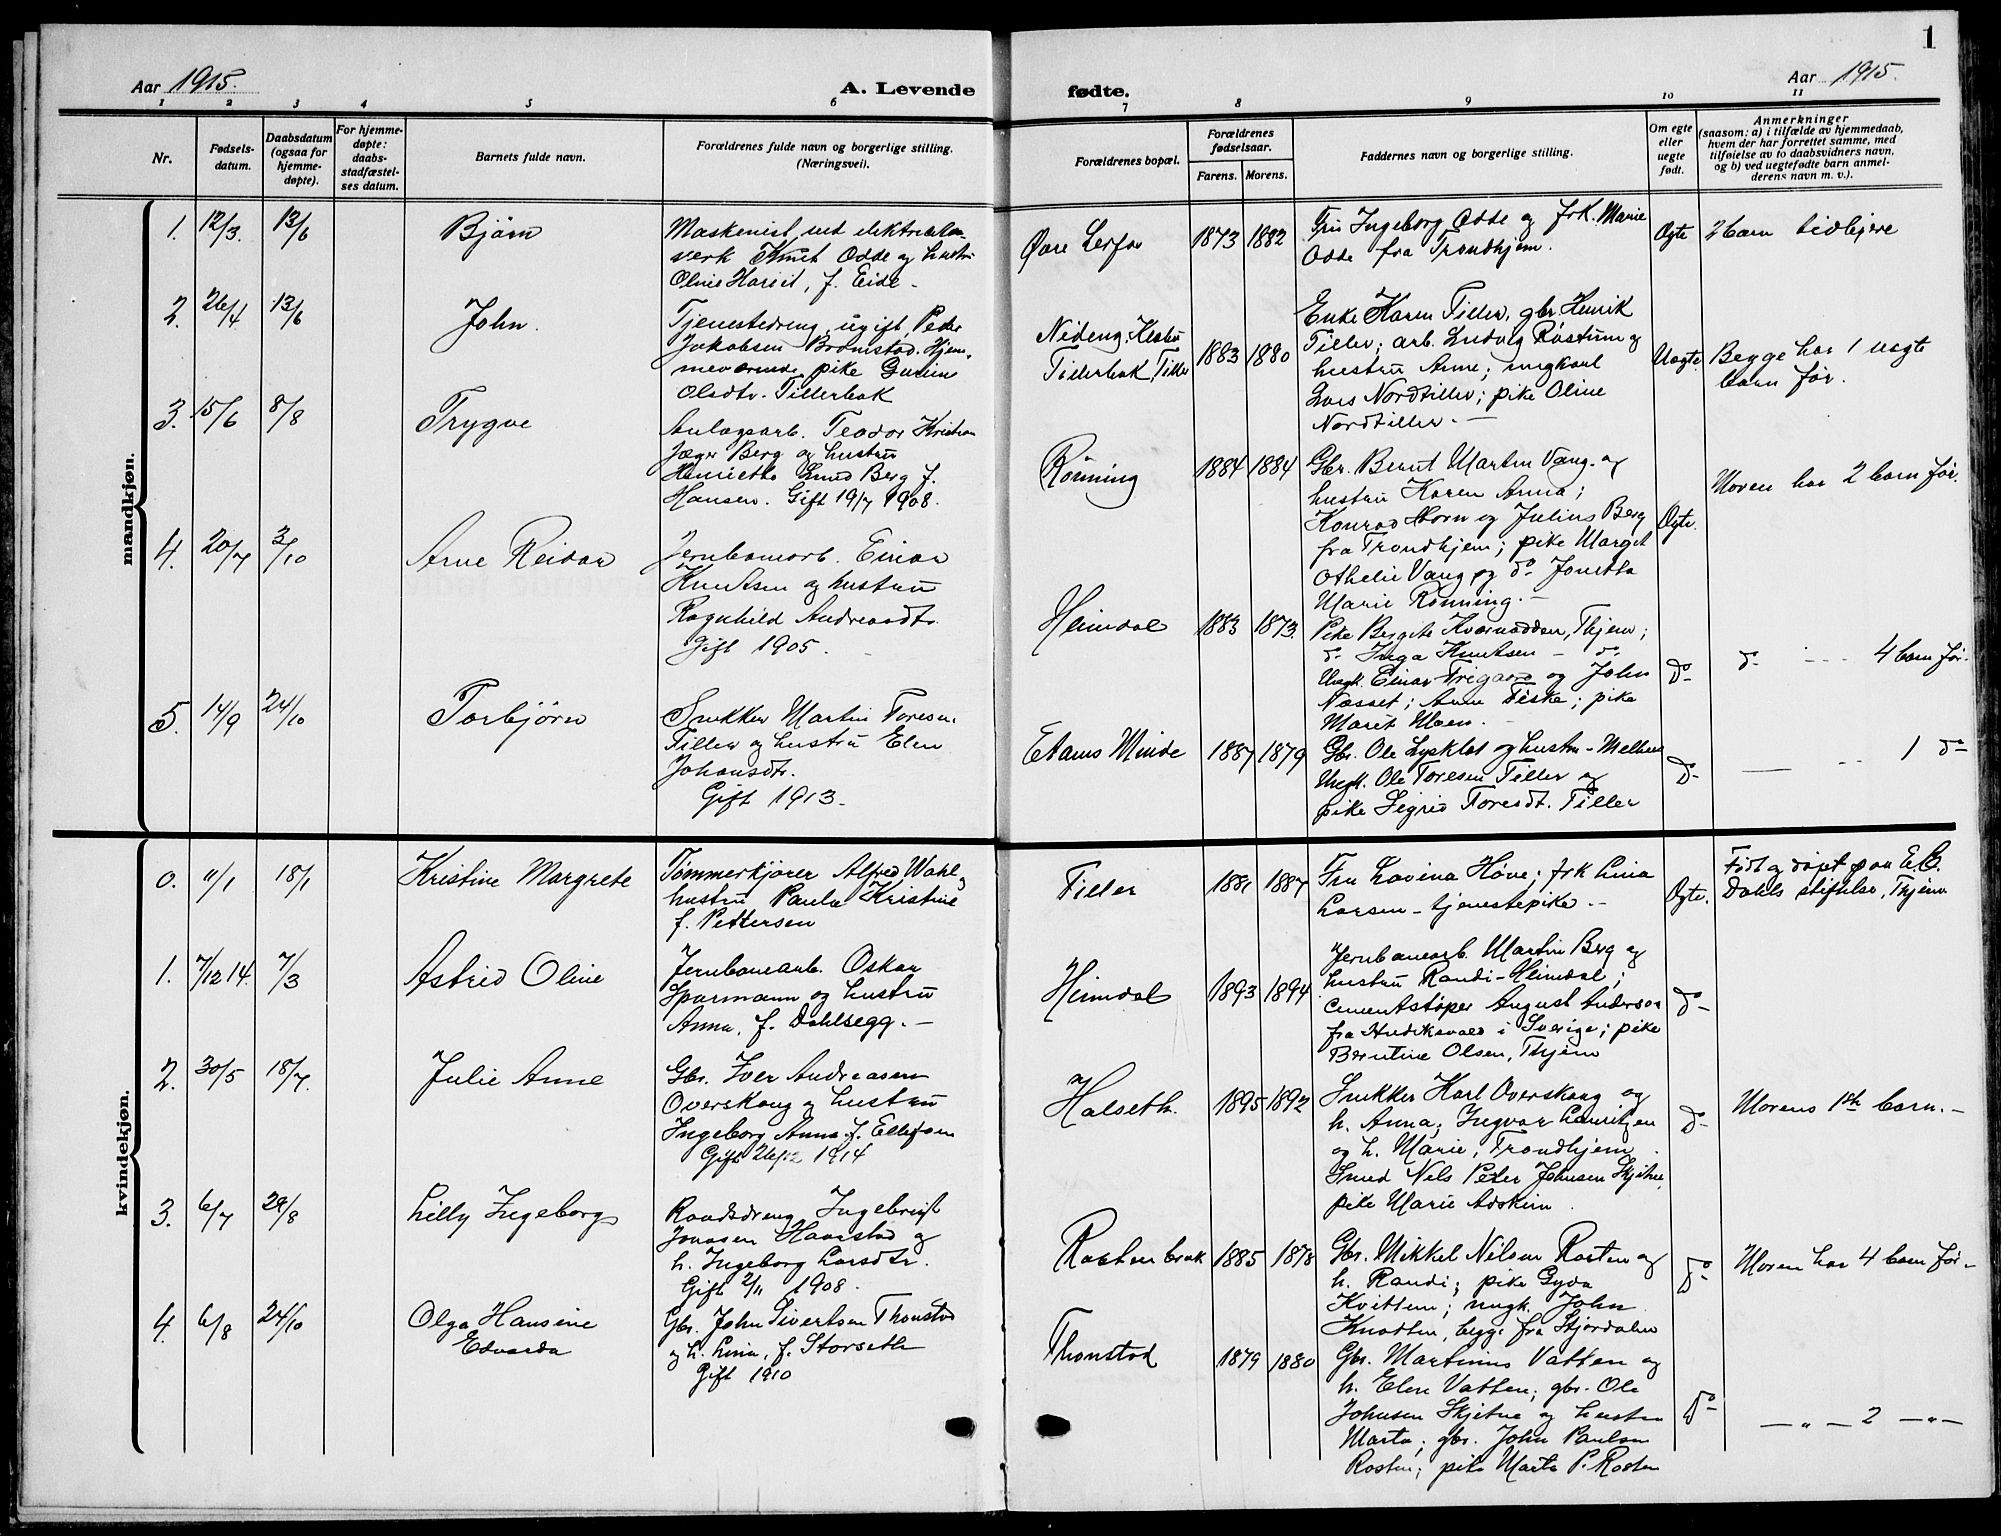 1
Aar 1915.
A. Levende fødte.
Aar 1915.
1 2 3 4 5 6 7 8 9 10 11
Nr.
Fødsels-
datum.
Daabsdatum
(ogsaa for
hjemme-
døpte).
For hjemme-
døpte:
daabs-
stadfæstel-
ses datum.
Barnets fulde navn.
Forældrenes fulde navn og borgerlige stilling.
(Næringsvei).
Forældrenes bopæl.
Forældrenes
fødselsaar.
Farens. Morens.
Faddernes navn og borgerlige stilling.
Om egte
eller
uegte
født.
Anmerkninger
(saasom: a) i tilfælde av hjemmedaab,
hvem der har forrettet samme, med
tilføielse av to daabsvidners navn,
og b) ved uegtefødte barn anmel-
derens navn m. v.).
mandkjøn.
1. 12/3. 13/6 Bjørn
Maskenist ved elektricitets-
verk Knut Odde og hustru
Harriet, f. Eide.
Øvre Lerfos 1873 1882
Fru Ingeborg Odde og frk. Marie
Odde fra Trondhjem.
Egte 2 barn tidligere
2. 26/4 13/6 John.
Tjenestedreng, ugift Peder
Jakobsen Bromstad. Hjem-
meværende pike
Olsdtr. Tillerbak
Tillerbak, Tiller 1883 1880
Enke Karen Tiller, gbr Henrik
Tiller; arb. Ludvig Røstum og
hustru Anne; ungkarl
Lars Nordtiller; pike Oline
Nordtiller.
Uegte. Begge har 1 uegte
barn før.
3. 15/6 8/8 Trygve
Anlægsarb. Teodor Kristian
Jæger Berg og hustru
Henriette Lund Berg f.
Hansen. Gift 19/7 1908.
Rönning 1884 1884
Gbr. Bernt Martin Vang og
hustru Karen Anna;
Konrad Horn og Julius Berg
fra Trondhjem; pike Marget
Othelie Vang og do Jonetta
Marie Rönning.
Egte. Moren har 2 barn før.
4. 20/7 3/10 Arne Reidar
Jernbanearb. Einar
Knutsen og hustru
Ragnhild Andreasdtr.
Gift 1905.
Heimdal 1883 1873.
Pike Bergite, Thjem;
do Inga Knutsen - do
Ungk. Einar og John
Næsset; Anne Fiske; pike
Marit Moen.
do do 4 barn før.
5. 14/9 24/10 Torbjørn
Snekker Martin Toresen
Tiller og hustru Elen
Johansdtr.
Gift 1913.
Minde 1887 1879
Gbr. Ole Lysklet og hustru
Ungk. Ole Toresen Tiller og
pike Sigrid Toresdt. Tiller
do 1 do
kvindekjøn.
0. 11/1 18/1 Kristine Margrete
Tømmerkjører Alfred Wahl og
hustru Paula Kristine
f. Pettersen
Tiller 1881 1887
Fru Lovina Høve; frk Lina
Larsen - tjenestepike.
Egte. Født og døpt paa E. C.
Dahls stiftelse, Thjem
1. 7/12 14. 7/3 Astrid Oline
Jernbanearb. Oskar
Sparmann og hustru
Anna, f. Dahlsegg.
Heimdal 1893 1894
Jernbanearb. Martin Berg og
hustru Randi - Heimdal;
cementstøper August Anderson
fra Hudiksvald i Sverige; pike
Berntine Olsen, Thjem
do
2. 30/5 18/7. Julie Anne
Gbr. Iver Andreasen
Overskoug og hustru
Ingeborg Anna f. Ellefsen
Gift 26/12 1914
Halseth. 1895 1892
Snekker Karl Overskoug og
h. Anna; Ingvar Lauritzen
og h. Marie, Trondhjem.
Smed Nils Peter Johnsen Skjetne,
pike Marie
do Morens 1ste barn.
3. 6/7 29/8 Lilly Ingeborg
Ingebrigt
Jonasen Haarstad og
h. Ingeborg Larsdtr.
Gift 2/11 1908.
Rostenbrak 1885 1878
Gbr. Mikkel Nilsen Rosten og
h. Randi; pike Gyda
Kvittem; ungk. John
Knodten, begge fra Stjørdalen
do Moren har 4 barn før.
4. 6/8 24/10 Olga Hansine
Edvarda
Gbr. John Sivertsen Thonstad
og h. Lina, f. Storseth
Gift 1910
Thonstad 1879 1880
Gbr. Martinus Vatten og
h. Elen Vatten; gbr. Ole
Johnsen Skjetne og hustru
Marta; gbr. John Paulsen
Rosten; pike Marta P. Rosten
do - „ - 2 - „ -